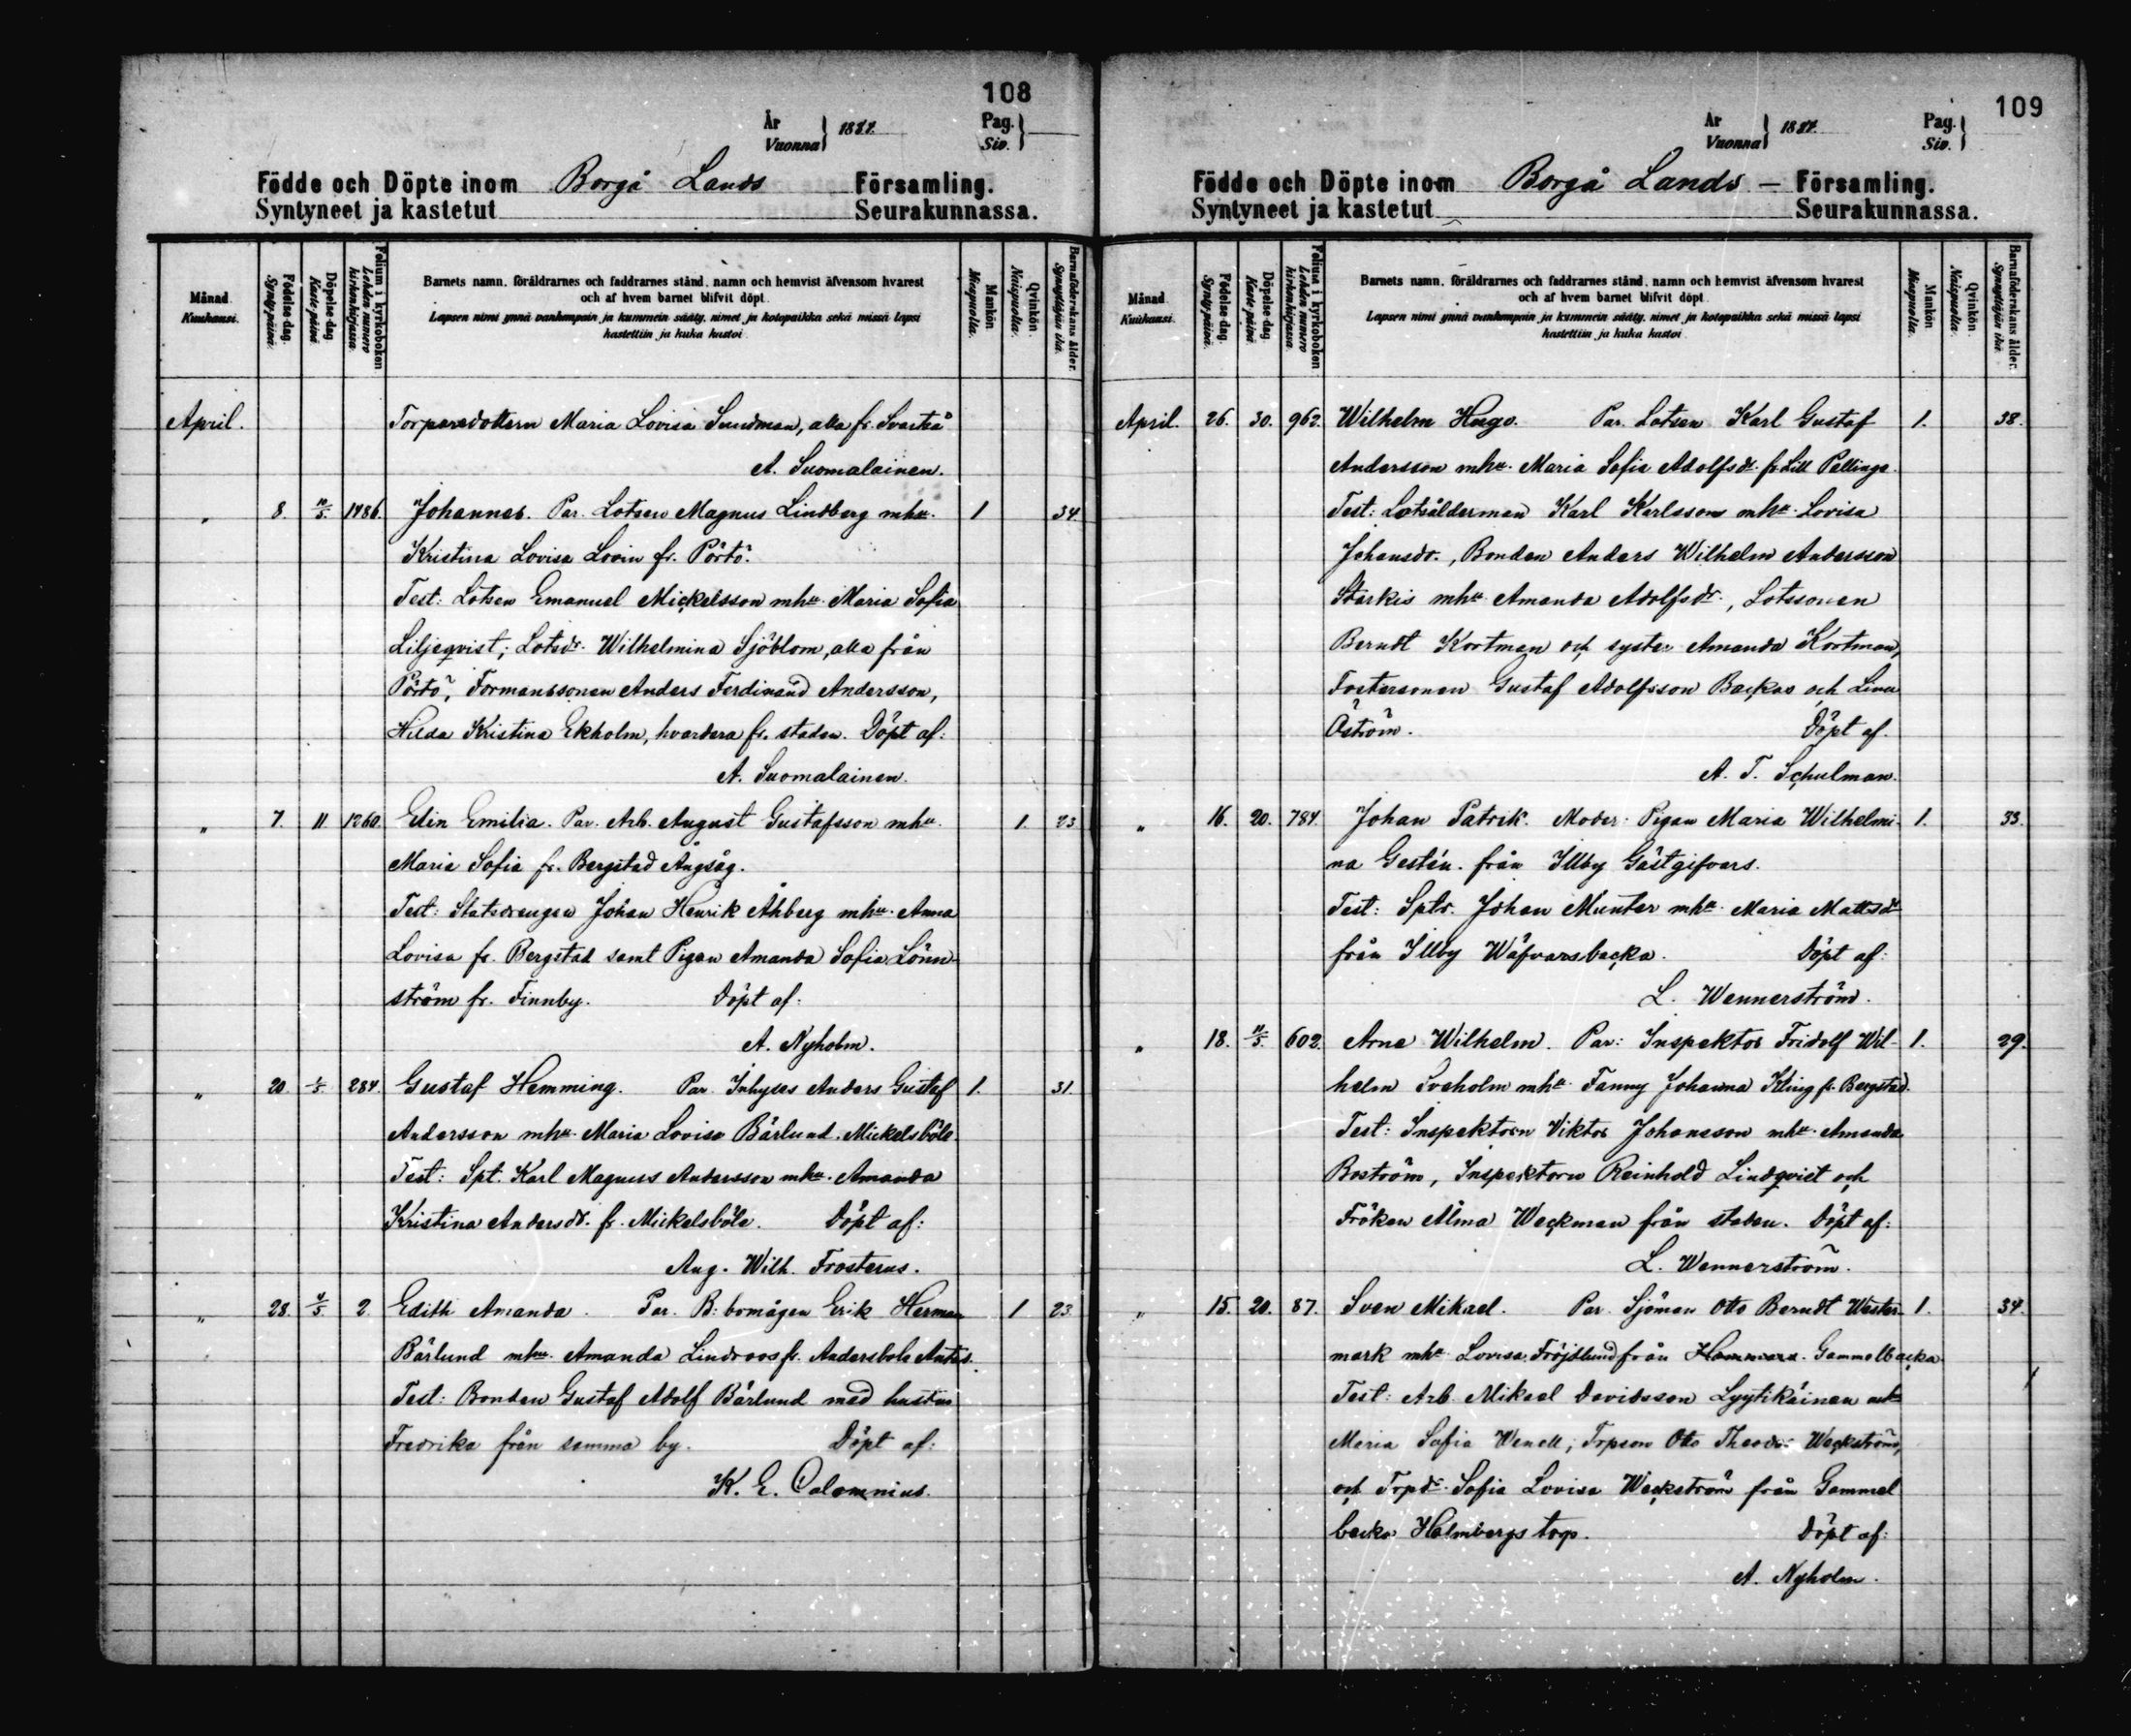 108
År
Vuonna
Pag.
Siv.
Födde och Döpte inom Borgå Lands Församling.
Syntyneet ja kastetut Seurakunnassa.
Månad.
Kuukausi.
Födelse dag.
Synty-päivä.
Döpelse dag
Kaste päivä.
Folium i kyrkoboken
Lehden numero
kirkonkirjassa.
Barnets namn, föräldrarnes och faddrarnes stånd, namn och hemvist äfvensom hvarest
och af hvem barnet blifvit döpt.
Lapsen nimi ynnä vanhempain ja kummein sääty, nimet ja kotopaikka sekä missä lapsi
kastettiin ja kuka kastoi.
Mankön
Miespuolta.
Qvinkön.
Naispuolta.
Barnaföderskans ålder.
Synnyttäjän ikä.
April. Torparedottern Maria Lovisa Sundman, alla fr. Svartså
A. Suomalainen.
" 8. 11/5. 1486. Johannes. Par. Lotsen Magnus Lindberg mhu. 1 34
Kristina Lovisa Lovin fr. Pörtö.
Test: Lotsen Emanuel Mickelsson mhu. Maria Sofia
Liljeqvist; Lotsdr. Wilhelmina Sjöblom, alla från
Pörtö, Formanssonen Anders Ferdinand Andersson,
Hilda Kristina Ekholm, hvardera fr. staden. Döpt af:
A. Suomalainen.
" 7. 11. 1260. Elin Emilia. Par. Arb. August Gustafsson mhu. 1. 23
Maria Sofia fr. Bergstad Ångsåg.
Test: Statsdrengen Johan Henrik Åhberg mhu. Anna
Lovisa fr. Bergstad samt Pigan Amanda Sofia Lönn-
ström fr. Finnby. Döpt af:
A. Nyholm.
" 20. 1/5. 284. Gustaf Hemming. Par. Inhyses Anders Gustaf 1. 31.
Andersson mhu. Maria Lovisa Bärlund. Mickelsböle.
Test: Spt. Karl Magnus Andersson mhu. Amanda
Kristina Andersdr. fr. Mickelsböle. Döpt af:
Aug. Wilh. Frosterus.
" 28. 4/5 2. Edith Amanda. Par. B: bomågen Erik Herman 1 23
Bärlund mhu. Amanda Lindroos fr. Andersböle Anders.
Test: Bonden Gustaf Adolf Bärlund med hustru
Fredrika från samma by. Döpt af:
K. E. Calamnius.
109
År
Vuonna
Pag.
Siv.
Födde och Döpte inom Borgå Lands — Församling.
Syntyneet ja kastetut Seurakunnassa.
Månad.
Kuukausi.
Födelse dag.
Synty-päivä.
Döpelse dag
Kaste päivä.
Folium i kyrkoboken
Lehden numero
kirkonkirjassa.
Barnets namn, föräldrarnes och faddrarnes stånd, namn och hemvist äfvensom hvarest
och af hvem barnet blifvit döpt.
Lapsen nimi ynnä vanhempain ja kummein sääty, nimet ja kotopaikka sekä missä lapsi
kastettiin ja kuka kastoi.
Mankön
Miespuolta.
Qvinkön.
Naispuolta.
Barnaföderskans ålder.
Synnyttäjän ikä.
April. 26. 30. 962. Wilhelm Hugo. Par. Lotsen Karl Gustaf 1. 38.
Andersson mhu. Maria Sofia Adolfsdr. fr. Lill Pellinge.
Test: Lotsålderman Karl Karlsson mhu. Lovisa
Johansdr., Bonden Anders Wilhelm Andersson
Starkis mhu Amanda Adolfsdr., Lotssonen
Berndt Kortman och syster Amanda Kortman,
Fostersonen Gustaf Adolfsson Backas och Lina
Öström. Döpt af.
A. T. Schulman.
" 16. 20. 784. Johan Patrik. Moder: Pigan Maria Wilhelmi- 1. 33.
na Gestén. från Illby Gästgifvars.
Test: Sptr. Johan Munter mhu. Maria Mattsdr
från Illby Wäfvarsbacka. Döpt af:
L. Wennerström.
" 18. 11/5. 602. Arne Wilhelm. Par: Inspektor Fridolf Wil- 1. 29.
helm Sveholm mhu Fanny Johanna Kling fr. Bergstad.
Test: Inspektorn Viktor Johansson mhu. Amanda
Boström, Inspektorn Reinhold Lindqvist och
Fröken Alma Weckman från staden. Döpt af:
L. Wennerström.
" 15. 20. 87. Sven Mikael. Par. Sjöman Otto Berndt Wester- 1. 34.
mark mhu Lovisa Fröjdlund från Gammelbacka
Test: Arb. Mikael Davidsson Lyytikäinen mhu
Maria Sofia Wenell, Trpson Otto Theodor Weckström,
och Trpdr. Sofia Lovisa Weckström från Gammel
backa Holmbergs torp. Döpt af:
A. Nyholm.